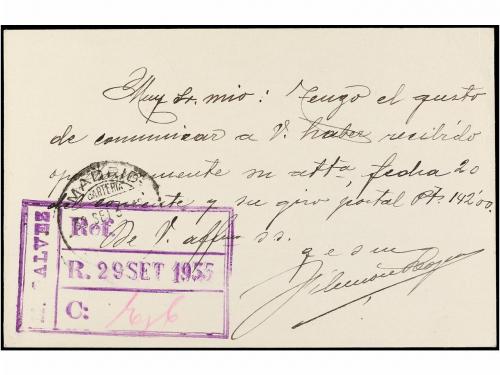 Muy Sr. mio: Tengo el gusto
de comunicar a V. haber recibido
oportunamente su atta, fecha 20
del corriente y su giro postal Pts. 142'00.
De V. affmo s.s.
q e s m
MADRID
CARTERIA
SET
GALVEZ
Ref.
R. 29 SET 1935
C: